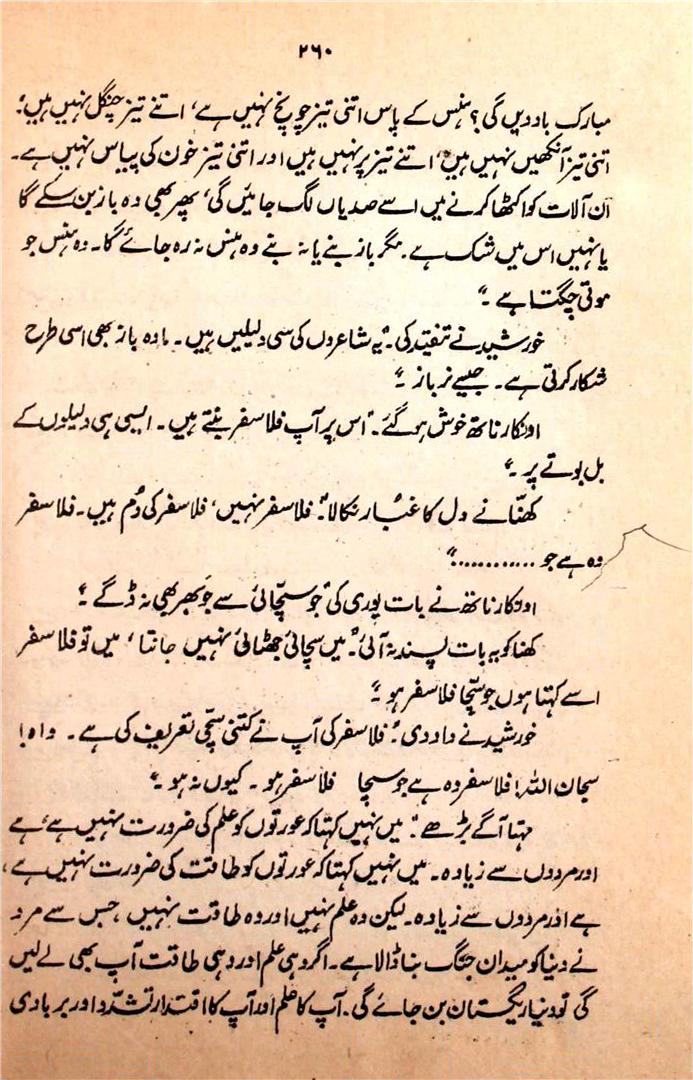 ۲۶۰
مبارک باد دیں گی؟ ہنس کے پاس اتنی تیز چونچ نہیں ہے، اتنے تیز چنگل نہیں ہیں،
اتنی تیز آنکھیں نہیں ہیں، اتنے تیز پر نہیں ہیں اور اتنی تیز خون کی پیاس نہیں ہے۔
ان آلات کو اکٹھا کرنے میں اسے صدیاں لگ جائیں گی، پھر بھی وہ باز بن سکے گا
یا نہیں اس میں شک ہے۔ مگر باز بنے یا نہ بنے وہ ہنس نہ رہ جائے گا۔ وہ ہنس جو
موتی چگتا ہے۔"
خورشید نے تنقید کی۔ "یہ شاعروں کی سی دلیلیں ہیں۔ مادہ باز بھی اسی طرح
شکار کرتی ہے۔ جیسے نر باز۔"
اونکار ناتھ خوش ہو گئے۔ "اس پر آپ فلاسفر بنتے ہیں۔ ایسی ہی دلیلوں کے
بل بوتے پر۔"
کھنّا نے دل کا غبُار نکالا۔ "فلاسفر نہیں، فلاسفر کی دُم ہیں۔ فلاسفر
وہ ہے جو ............"
اونکار ناتھ نے بات پوری کی "جو سچّائی سے جَو بھر بھی نہ ڈگے۔"
کھنا کو یہ بات پسند نہ آئی۔ "میں سچائی جھٹائی نہیں جانتا، میں تو فلاسفر
اسے کہتا ہوں جو سچّا فلاسفر ہو۔"
خورشید نے داد دی۔ "فلاسفر کی آپ نے کتنی سچّی تعریف کی ہے۔ واہ!
سبحان اللہ! فلاسفر وہ ہے جو سچا فلاسفر ہو۔ کیوں نہ ہو۔"
مہتا آگے بڑھے۔ "میں نہیں کہتا کہ عورتوں کو علم کی ضرورت نہیں ہے، ہے
اور مردوں سے زیادہ۔ میں نہیں کہتا کہ عورتوں کو طاقت کی ضرورت نہیں ہے،
ہے اور مردوں سے زیادہ۔ لیکن وہ علم نہیں اور وہ طاقت نہیں، جس سے مرد
نے دنیا کو میدان جنگ بنا ڈالا ہے۔ اگر وہی علم اور وہی طاقت آپ بھی لے لیں
گی تو دنیا ریگستان بن جائے گی۔ آپ کا علم اور آپ کا اقتدار تشدّد اور بربادی